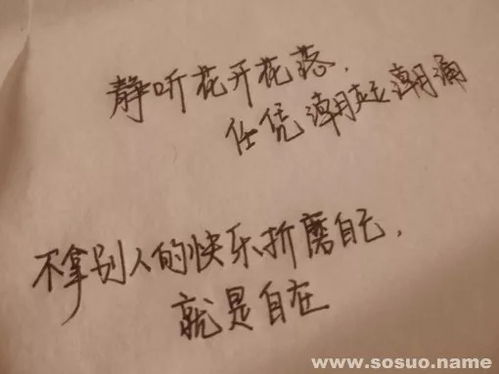 静听花开花落，
任凭潮起潮涌
不拿别人的快乐折磨自己，
就是自在
www.sosuo.name